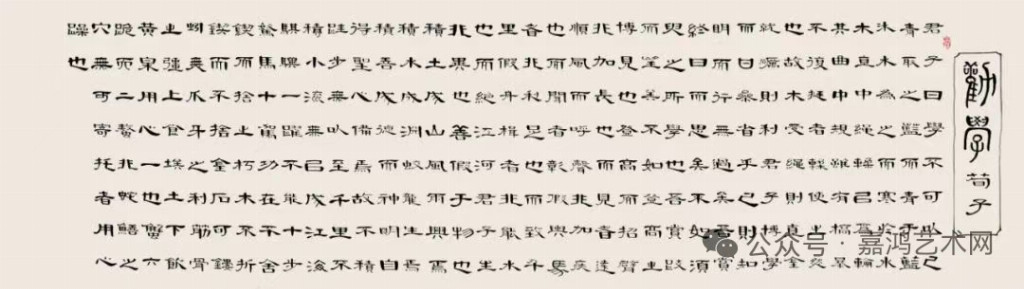 勸學 荀子
君子曰學不可以已
青取之藍而青於藍
冰水為之而寒於水
木直中繩輮以為輪
其曲中規雖有槁暴
不復挺者輮使之然
也故木受繩則直金
就礪則利君子博學
而日參省乎己則知
明而行無過矣吾嘗
終日而思矣不如須
臾之所學也吾嘗跂
而望矣不如登高之
博見也登高而招臂
非加長也而見者遠
順風而呼聲非加疾
也而聞者彰假輿馬
者非利足也而致千
里假舟楫者非能水
也而絕江河君子生
非異也善假于物也
積土成山風雨興焉
積水成淵蛟龍生焉
積善成德而神明自
得聖心備焉故不積
跬步無以至千里不
積小流無以成江海
騏驥一躍不能十步
駑馬十駕功在不舍
鍥而捨之朽木不折
鍥而不捨金石可鏤
蚓無爪牙之利筋骨
之強上食埃土下飲
黃泉用心一也蟹六
跪而二螯非蛇鱔之
穴無可寄托者用心
躁也
公众号·嘉鸿艺术网